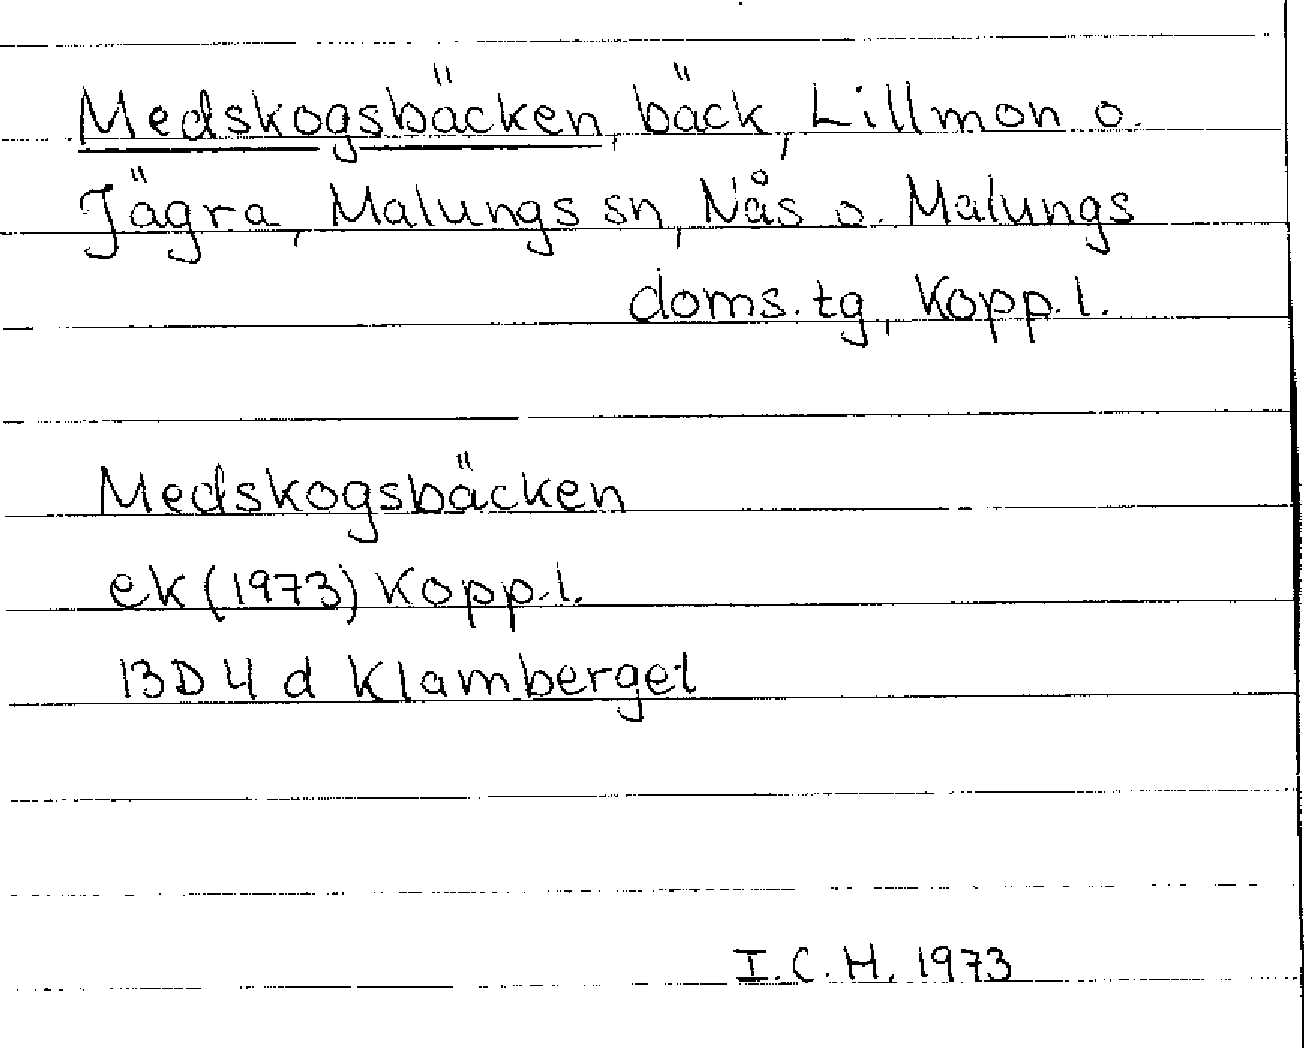 Medskogsbäcken, bäck, Lillmon o.
Jägra, Malungs sn, Nås o. Malungs
doms. tg, Kopp. l.
Medskogsbäcken
ek (1973) Kopp. l.
13D 4 d Klamberget
I.C.H. 1973